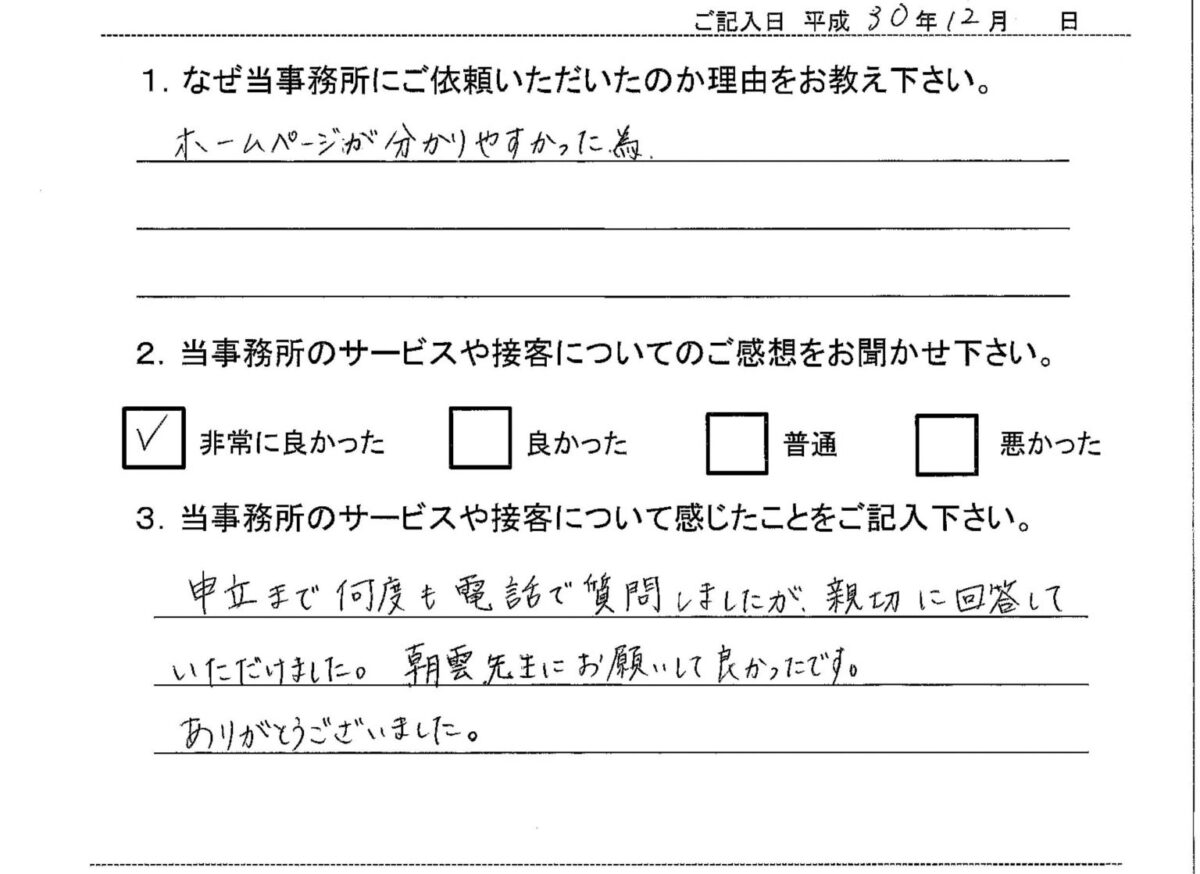 ご記入日 平成 30年12月 日
1. なぜ当事務所にご依頼いただいたのか理由をお教え下さい。
ホームページが分かりやすかった為.
2. 当事務所のサービスや接客についてのご感想をお聞かせ下さい。
✓ 非常に良かった □ 良かった □ 普通 □ 悪かった
3. 当事務所のサービスや接客について感じたことをご記入下さい。
申立まで何度も電話で質問しましたが、親切に回答して
いただけました。朝雲先生にお願いして良かったです。
ありがとうございました。